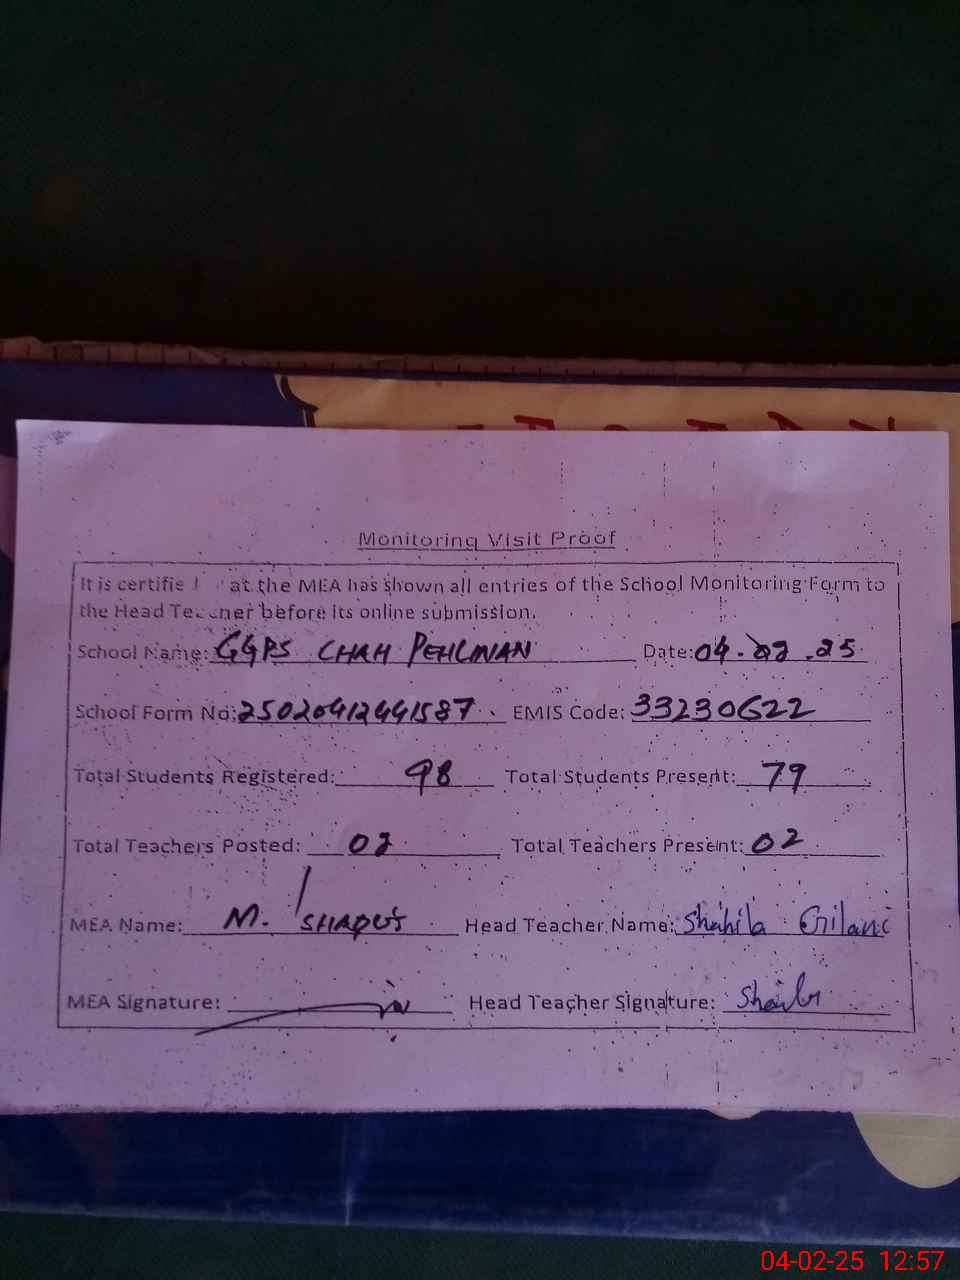 Monitoring Visit Proof
It is certifie at the MEA has shown all entries of the School Monitoring Form to
the Head Teacher before its online submission.
School Name: GGPS CHAH PEHLWAN Date: 04.02.25
School Form No: 25020412441587 EMIS Code: 33230622
Total Students Registered: 98 Total Students Present: 79
Total Teachers Posted: 02 Total Teachers Present: 02
MEA Name: M. Head Teacher Name: Shahila Gilani
MEA Signature: Head Teacher Signature:
04-02-25 12:57